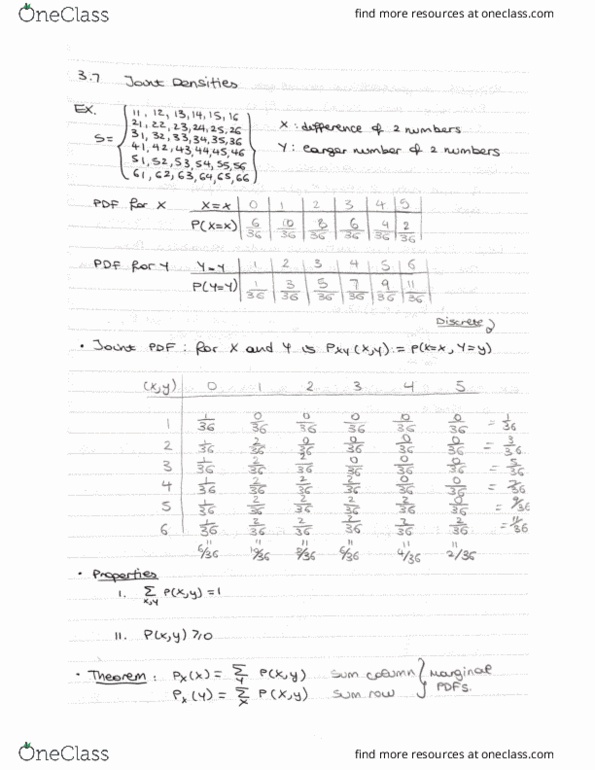 OneClass
find more resources at oneclass.com
3.7 Joint Densities
EX.
S=
11, 12, 13, 14, 15, 16
21, 22, 23, 24, 25, 26
31, 32, 33, 34, 35, 36
41, 42, 43, 44, 45, 46
51, 52, 53, 54, 55, 56
61, 62, 63, 64, 65, 66
X : difference of 2 numbers
Y : larger number of 2 numbers
PDF for X X=x 0 1 2 3 4 5
P(X=x) 6/36 10/36 8/36 6/36 4/36 2/36
PDF for Y Y=y 1 2 3 4 5 6
P(Y=y) 1/36 3/36 5/36 7/36 9/36 11/36
Discrete
• Joint PDF : for X and Y is Pxy (x,y) = P(X=x, Y=y)
(x,y) 0 1 2 3 4 5
1 1/36 0/36 0/36 0/36 0/36 0/36 = 1/36
2 1/36 2/36 0/36 0/36 0/36 0/36 = 3/36
3 1/36 2/36 2/36 0/36 0/36 0/36 = 5/36
4 1/36 2/36 2/36 2/36 0/36 0/36 = 7/36
5 1/36 2/36 2/36 2/36 2/36 0/36 = 9/36
6 1/36 2/36 2/36 2/36 2/36 2/36 = 11/36
" " " " " "
6/36 10/36 8/36 6/36 4/36 2/36
• Properties
I. Σ x,y P(x,y) = 1
II. P(x,y) ≥ 0
• Theorem : Px(x) = Σ y P(x,y) sum column } marginal
Px(y) = Σ x P(x,y) sum row PDFs.
OneClass
find more resources at oneclass.com